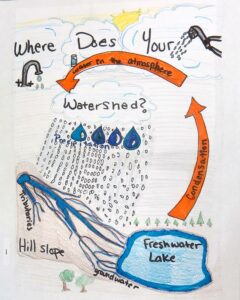 Where Does Your
water in the atmosphere
Watershed?
Precipitation
Condensation
tributaries
Hill slope
Freshwater
Lake